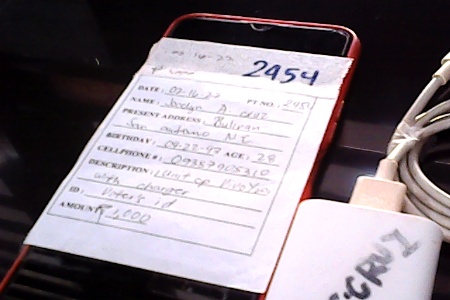 02-16-22
2454
DATE: 02-16-22 PT NO. 2454
NAME: Jocelyn A cruz
PRESENT ADDRESS Buliran
San antonio N.E
BIRTHDAY: 09-22-93 AGE: 28
CELLPHONE #: 09357905310
DESCRIPTION: 1 unit cp Vivo
with charger
ID: Voter's id
AMOUNT ₱ 1,000
CRUZ